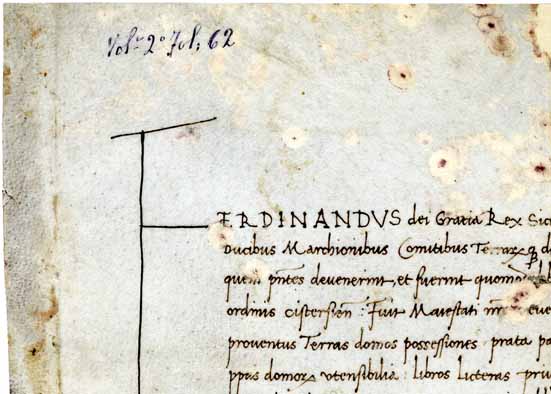 Vol. 2º fol. 62
FERDINANDVS dei Gratia Rex Sic
Ducibus Marchionibus Comitibus Terraꝝ
quem pn̄tes devenerint, et fuerint
ordinis cistersien̄: Fuit Maiestati nr̄e
proventus Terras domos possessiones prata
domoꝝ vtensibilia: libros licteras priu